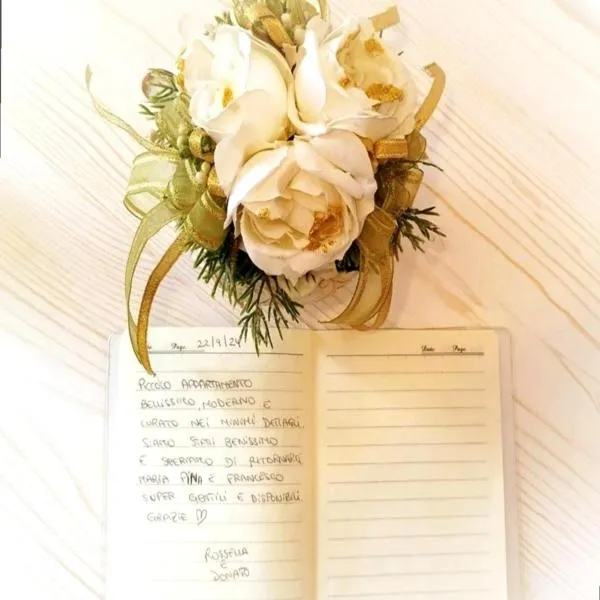 Page 22/9/24
Date Page
PICCOLO APPARTAMENTO
BELLISSIMO, MODERNO E
CURATO NEI MINIMI DETTAGLI.
SIAMO STATI BENISSIMO
E SPERIAMO DI RITORNARCI
MARIA PINA E FRANCESCO
SUPER GENTILI E DISPONIBILI
GRAZIE ♡
ROSSELLA
E
DONATO